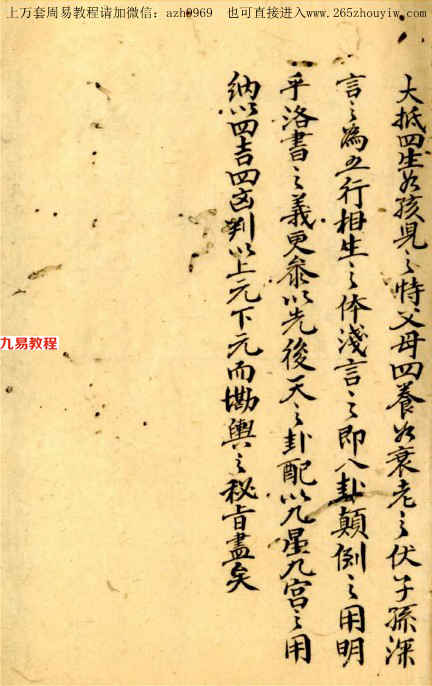 上万套周易教程请加微信：azh0969 也可直接进入www.265zhouyiw.com
大抵四生如孩兒之恃父母四養如衰老之伏子孫深
言之為五行相生之体淺言之即八卦顛倒之用明
乎洛書之義更參以先後天之卦配以九星九宮之用
納以四吉四凶判以上元下元而堪輿之秘旨盡矣
九易教程